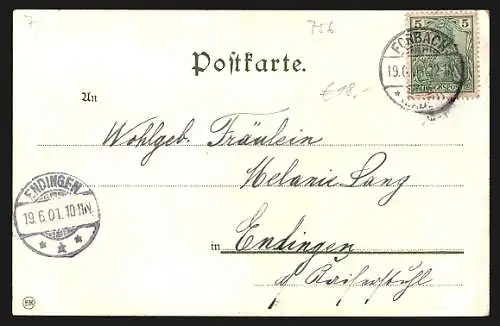 7
756
5 5
FORBACH
Postkarte.
19.6.
An
€18.-
Wohlgeb. Fräulein
Melanie Lang
ENDINGEN
19.6.01.10-11V.
in Endingen
a/ Kaiserstuhl
EN